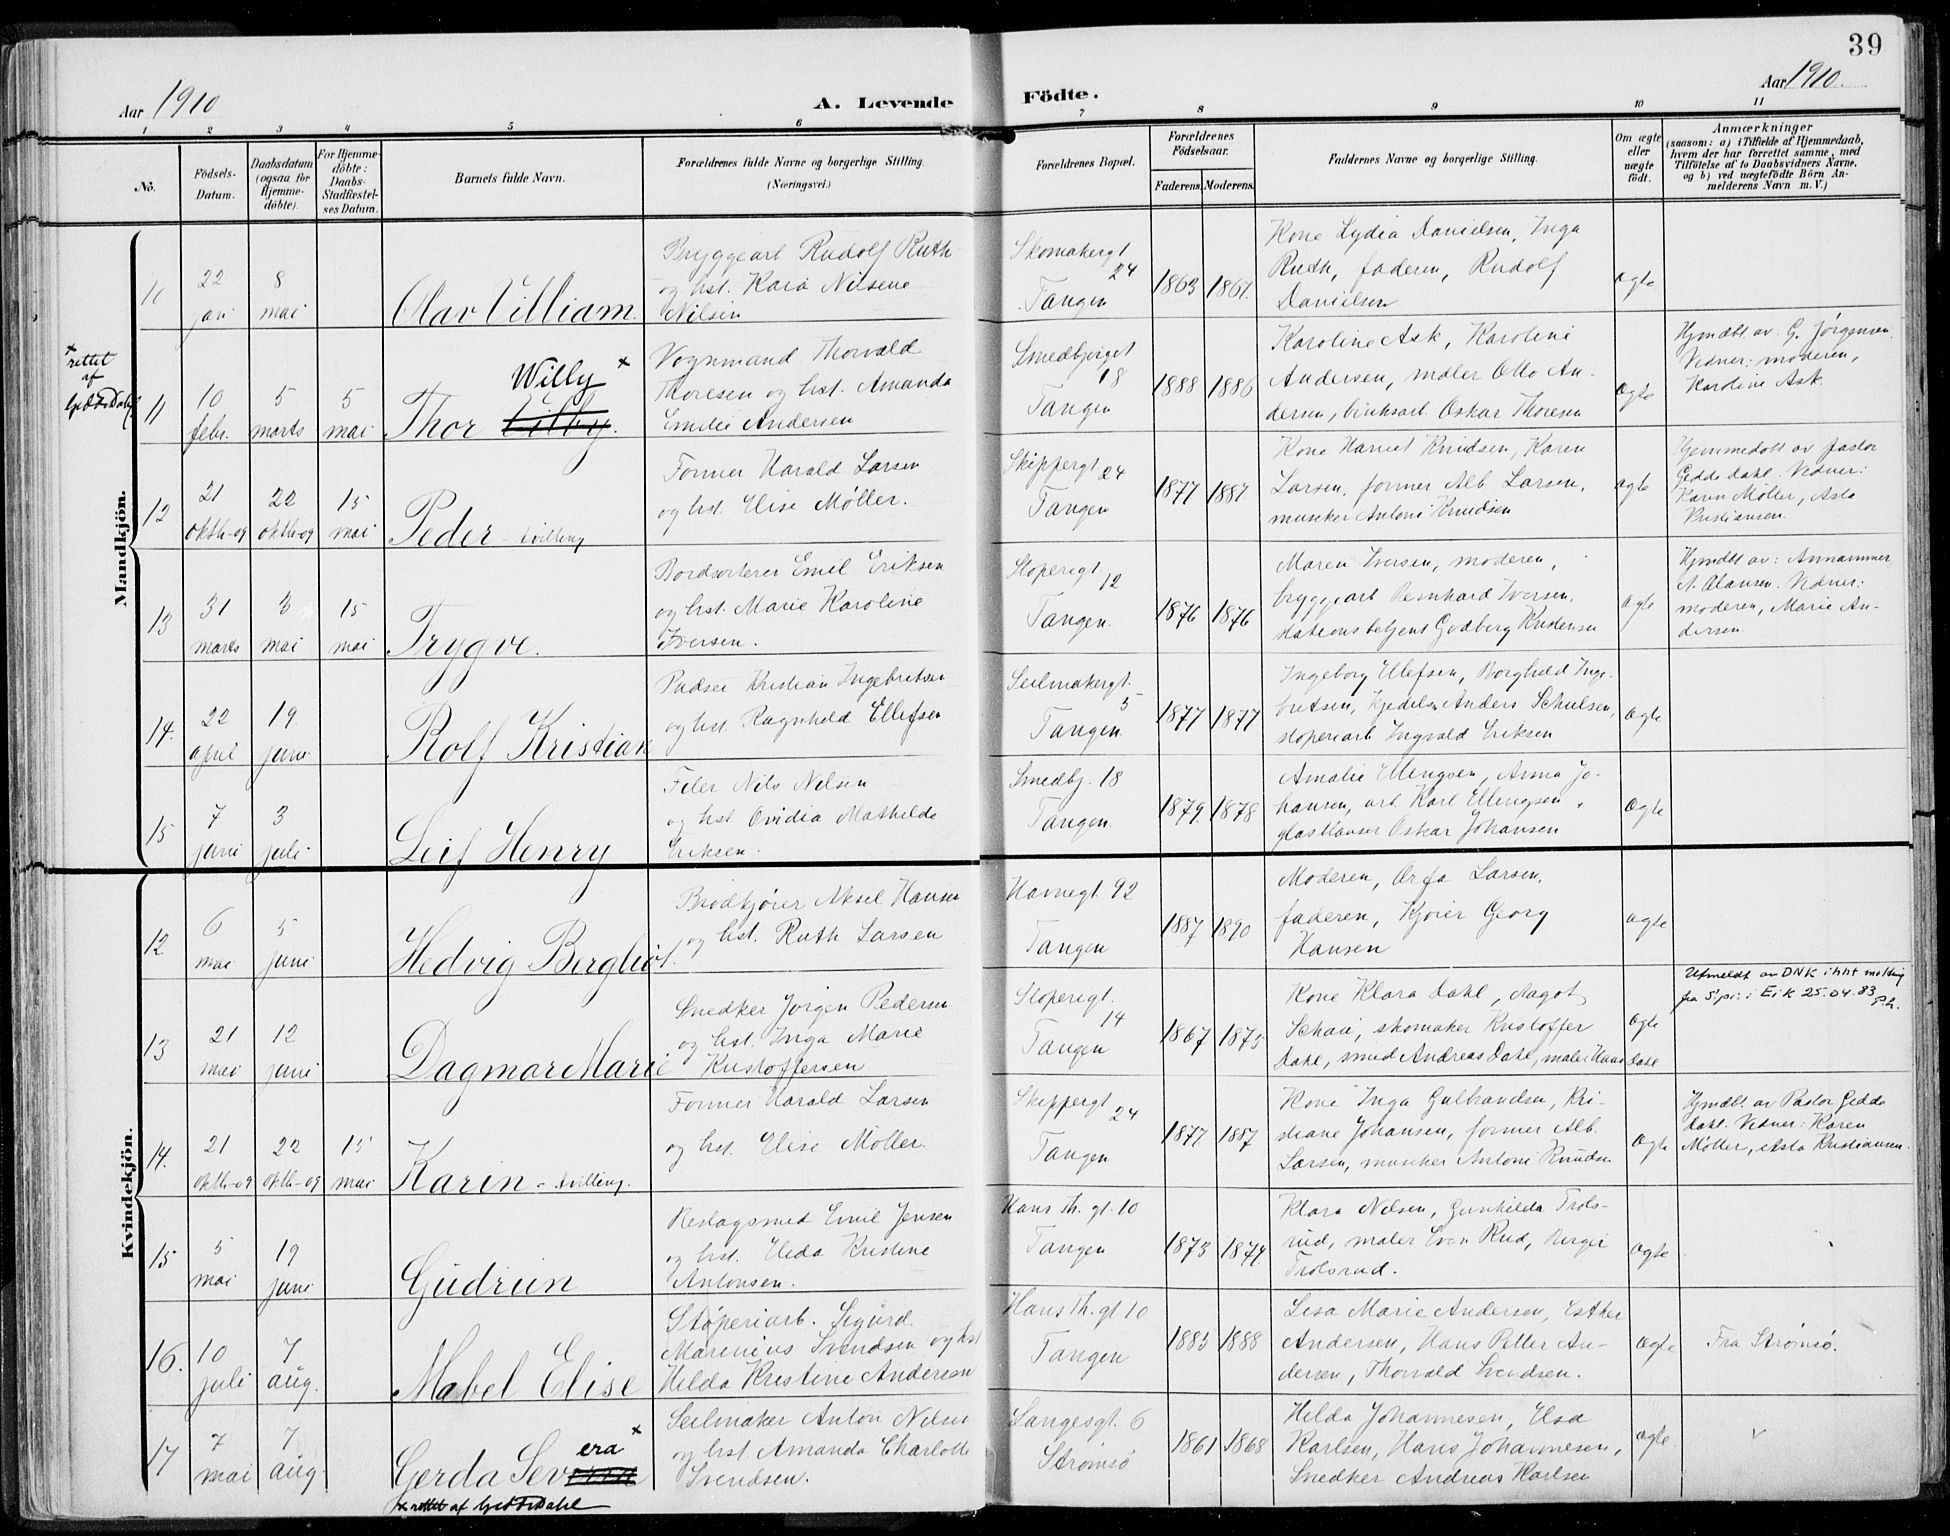 39
Aar 1910
A. Levende
Födte.
Aar 1910.
1 2 3 4 5 6 7 8 9 10 11
Nô.
Födsels-
Datum.
Daabsdatum
(ogsaa for
Hjemme-
döbte).
For Hjemme-
döbte:
Daabs-
Stadfæstel-
ses Datum.
Barnets fulde Navn.
Forældrenes fulde Navne og borgerlige Stilling.
(Næringsvei.)
Forældrenes Bopæl.
Forældrenes
Födselsaar.
Faderens. Moderens.
Faddernes Navne og borgerlige Stilling.
Om ægte
eller
uægte
födt.
Anmærkninger
(saasom: a) i Tilfælde af Hjemmedaab,
hvem der har forrettet samme, med
Tilföielse af to Daabsvidners Navne,
og b) ved uægtefödte Börn An-
melderens Navn m. V.)
Mandkjön.
10
22
jan
8
mai
Olav Villiam.
Bryggearb Rudolf Ruth
og hst. Nilsine
Nilsen
Skomakergt
24
Tangen
1863
1867.
Kone Lydia Danielsen, Inga
Ruth, faderen, Rudolf
Danielsen
ægte
x
rettet
af
11
10
febr.
5
marts
5
mai
Willy x
Thor
Vognmand Thorvald
Thoresen og hst. Amanda
Emilie Andersen
Smedbjerget
18
Tangen
1888
1886
Karoline Ask, Karoline
Andersen, maler Otto An-
dersen, Oskar Thoresen
ægte
Hjmdbt. av G. Jørgensen.
Vidner: moderen,
Karoline Ask.
12
21
oktb-09
22
oktb-09
15
mai
Peder - tvilling
Former Harald Larsen
og hst. Elise Møller.
Skippergt
24
Tangen
1877
1887
Kone Harriet Knudsen, Karen
Larsen, former Alb Larsen,
musiker Antoni Knudsen
ægte
Hjemmedøbt av pastor
Gedde Dahl. Vidner:
Karen Møller, Asta
Kristiansen.
13
31
marts
3
mai
15
mai
Trygve.
Bordsorterer Emil Eriksen
og hst. Marie Karoline
Iversen.
Støperigt
12
Tangen.
1876
1876
Maren Iversen, moderen,
bryggearb Bernhard Iversen,
stationsbetjent Godberg Kristensen
ægte
Hjmdbt av:
N. Olausen. Vidner:
moderen, Marie An-
dersen.
14.
22
april
19.
juni
Rolf Kristian
Pudser Kristian Ingebretsen
og hst. Ragnhild Ellefsen
Seilmakergt.
5
Tangen.
1877
1877
Ingeborg Ellefsen, Borghild Inge-
bretsen, Kjedels. Anders Schulsen,
støperiarb Ingvald Eriksen
ægte
15
7
juni
3
juli
Leif Henry
Filer Nils Nilsen
og hst Ovidia Mathilde
Eriksen.
Smedbj. 18
Tangen.
1879
1878
Amalie Ellingsen, Anna Jo-
hansen, arb. Karl Ellingsen,
Oskar Johansen
ægte
Kvindekjön.
12
6
mai
5
juni
Hedvig Bergliot.
Brødkjører Aksel Hansen
og hst. Ruth Larsen
Havnegt. 92
Tangen
1887
1890
Moderen, Larsen,
faderen, Kjører Georg
Hansen
ægte
13
21
mai
12
juni
Dagmar Marie
Snedker Jørgen Pedersen
og hst. Inga Marie
Kristoffersen
Støperigt.
14
Tangen
1867
1875
Kone Klara Dahl, Aagot
skomaker Kristoffer
Dahl, smed Andreas Dahl, maler Hans Dahl
ægte
Utmeldt av DNK i hht melding
fra S.pr. i Eik 25.04.83
14.
21
oktb-09
22
oktb-09
15
mai
Karin - tvilling.
Former Harald Larsen
og hst. Elise Møller.
Skippergt
24
Tangen
1877
1887
Kone Inga Gulbrandsen, Kri-
stiane Johansen, former Alb.
Larsen, musiker Antoni Knudsen
ægte
Hjmdbt. av Pastor Gedde
Dahl. Vidner: Karen
Møller, Asta Kristiansen.
15
5
mai
19
juni
Gudrun
Emil Jensen
og hst. Kristine
Antonsen.
Hans Th. gt. 10
Tangen
1873
1874.
Klara Nilsen, Gunhilda Trols-
rud, maler Even Rud, Birger
Trolsrud.
ægte
16.
10
juli
7
aug.
Mabel Elise
Støperiarb. Sigurd
Marinius Svendsen og hst
Hilda Kristine Andersen
Hans Th. gt 10
Tangen
1885
1888
Lisa Marie Andersen, Esther
Andersen, Hans Petter An-
dersen, Thorvald Svendsen.
ægte
Fra Strømsø.
17
7
mai
7
aug.
era x
Gerda Sev
Seilmaker Anton Nilsen
og hst Amanda Charlotte
Svendsen.
Langesgt. 6
Strømsø
1861
1868
Hilda Johannesen, Elsa
Karlsen, Hans Johannesen,
Snedker Andreas Karlsen
ægte
x rettet af Gedde Dahl